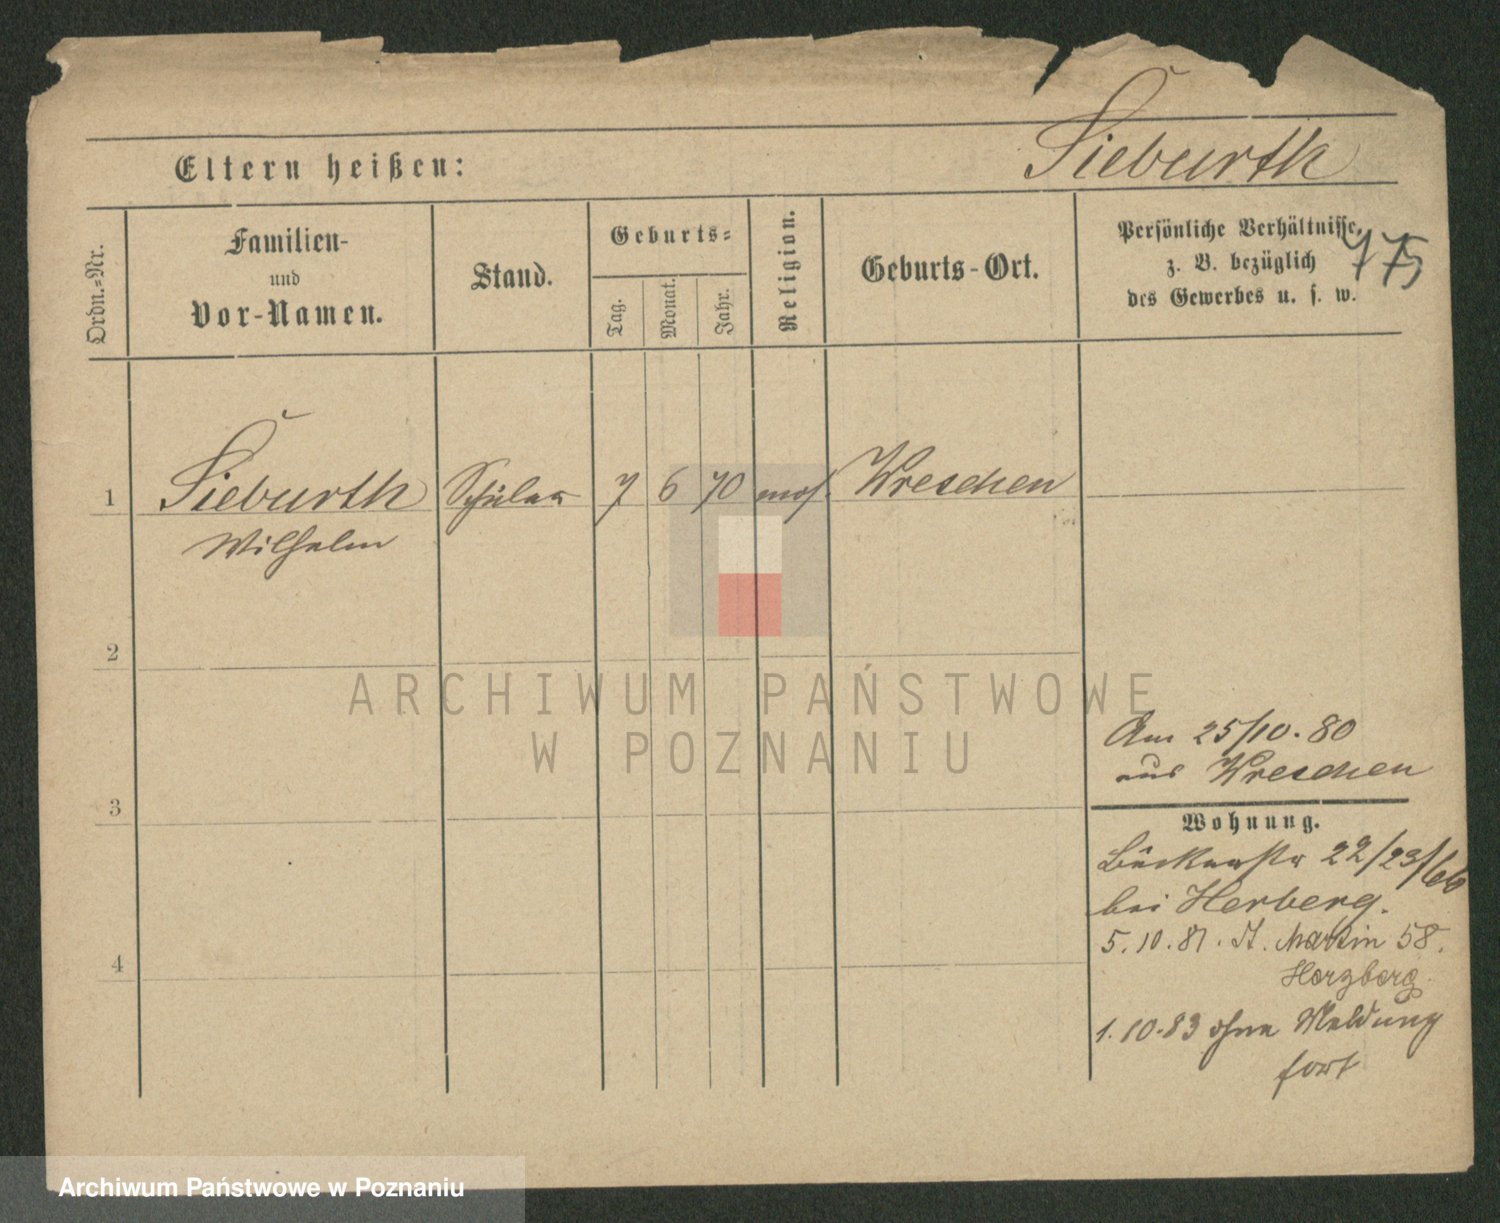 Sieburth
Eltern heißen:
Ordn.-Nr.
Familien-
und
Vor-Namen.
Stand.
Geburts-
Tag.
Monat.
Jahr.
Religion.
Geburts-Ort.
Persönliche Verhältnisse,
z. B. bezüglich
des Gewerbes u. s. w.
775
1 Sieburth Schüler 7 6 70 mos. Wreschen
Wilhelm
2
3
4
Am 25/10.80
aus Wreschen
Wohnung.
22/23/
bei Herberg.
5.10.81. St. Martin 58.
Herzberg
1.10.83 ohne Meldung
fort
ARCHIWUM PAŃSTWOWE
W POZNANIU
Archiwum Państwowe w Poznaniu